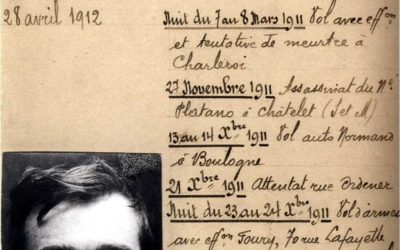 28 avril 1912
Nuit du 7 au 8 Mars 1911 Vol avec effon
et tentative de meurtre à
Charleroi
27 Novembre 1911 Assassinat du Né
Platano à châtelet (S et M)
13 au 14 Xbre 1911 Vol auto Normand
à Boulogne
21 Xbre 1911 Attentat rue Ordener
Nuit du 23 au 24 Xbre 1911 Vol d'armes
avec effon Foury, 70 rue Lafayette